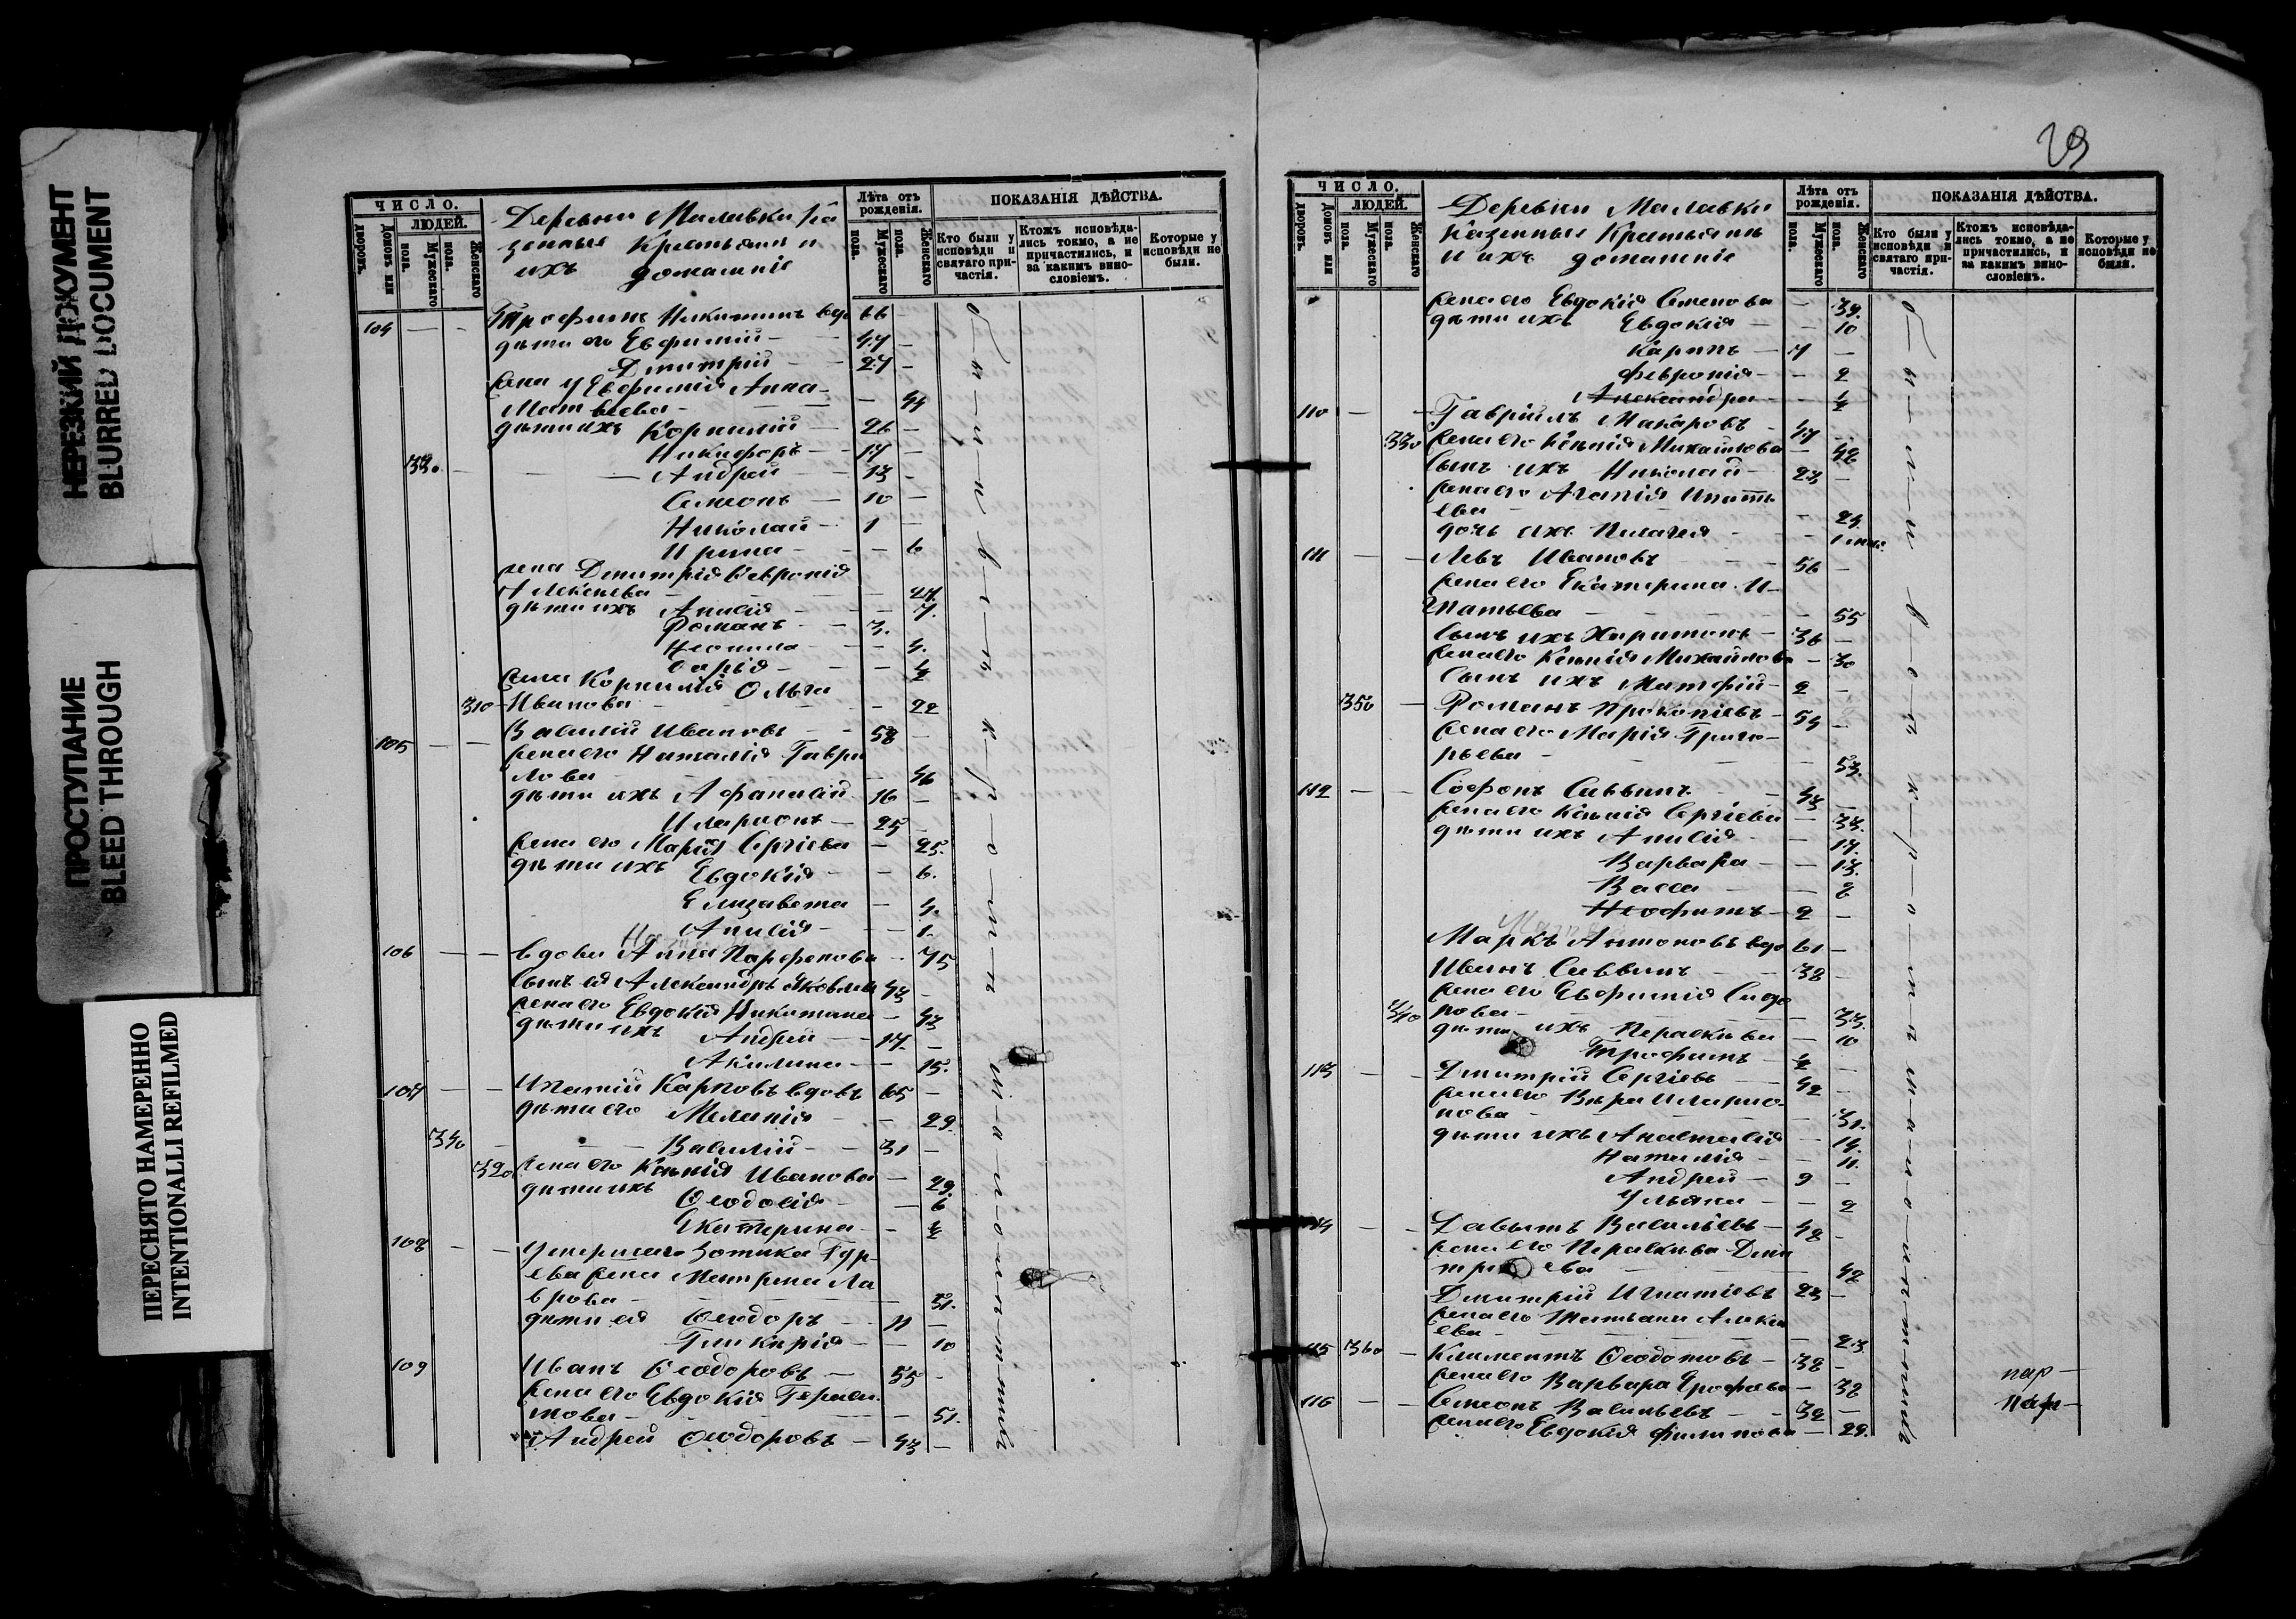 НЕРЕЗКИЙ ДОКУМЕНТ
BLURRED DOCUMENT
ПРОСТУПАНИЕ
BLEED THROUGH
ПЕРЕСНЯТО НАМЕРЕННО
INTENTIONALLI REFILMED
ЧИСЛО.
ЛЮДЕЙ.
Домовъ или дворовъ.
Мужескаго пола.
Женскаго пола.
Деревни Малавки Ка
зенные Крестьяне и
ихъ домашніе
Лѣта отъ рожденія.
Мужескаго пола.
Женскаго пола.
ПОКАЗАНІЯ ДѢЙСТВА.
Кто были у исповѣди и святаго причастія.
Ктожъ исповѣдались токмо, а не причастились, и за какимъ винословіемъ.
Которые у исповѣди не были.
104 — — Трофимъ Никитинъ вдо 66 —
дѣти его Евфимій — 47 —
Димитрій — 27 —
жена у Евфимія Анна
Матвѣева — — 44
дѣти ихъ Корнилій — 26 —
Никифоръ — 17 —
330 — Андрей — 13 —
Симеонъ — 10 —
Николай — 1 —
Ирина — — 6
жена Димитрія Февронія
Алексѣева — — 27
дѣти ихъ Анисія — — 7.
Романъ — 3.
Неонила — — 4.
Дарія — — ½
жена Корнилія Ольга
310 — Иванова — — 22
105 — — Василій Ивановъ — 58 —
жена его Наталія Гаври
лова — — 46
дѣти ихъ Афанасій 16 —
Иларіонъ — 25 —
жена его Марія Сергіева — 25.
дѣти ихъ Евдокія — — 6.
Елизавета — 4.
Анисія — — 1.
106 — — вдова Анна Парфенова — 75
сынъ ея Александръ Яковлевъ 43 —
жена его Евдокія Никитина — 43
дѣти ихъ Андрей — 17 —
Акилина — — 15.
107 — — Ипатій Карповъ вдовъ 65 —
дѣти его Меланія — — 29.
340 — Василій — 31 —
320 жена его Ксенія Иванова — 29.
дѣти ихъ Ѳеодосія — — 6
Екатерина — — ½
108 — — Умершаго Зотика Гур-
ева жена Матрена Ла
врова — — 31.
дѣти ея Ѳеодоръ — 11 —
Гликерія — — 10
109 Иванъ Ѳеодоровъ — 55 —
жена его Евдокія Гераси
мова — — 51.
Андрей Ѳеодоровъ — 43 —
29
ЧИСЛО.
ЛЮДЕЙ.
Домовъ или дворовъ.
Мужескаго пола.
Женскаго пола.
Деревни Малавки
Казенные Крестьяне
и ихъ домашніе
Лѣта отъ рожденія.
Мужескаго пола.
Женскаго пола.
ПОКАЗАНІЯ ДѢЙСТВА.
Кто были у исповѣди и святаго причастія.
Ктожъ исповѣдались токмо, а не причастились, и за какимъ винословіемъ.
Которые у исповѣди не были.
жена его Евдокія Семенова — 39.
дѣти ихъ Евдокія — — 10
Карпъ — 7 —
Февронія — — 2
Александра — — ½
110 — — Гавріилъ Макаровъ — 47 —
330 жена его Ксенія Михайлова — 42
Сынъ ихъ Николай — 23 —
жена его Агапія Ипать
ева — — 24.
дочь ихъ Пелагея — —
111 — — Левъ Ивановъ — 56 —
жена его Екатерина И-
патьева — — 55
Сынъ ихъ Харитонъ — 36 —
жена его Ксенія Михайлова — 30
Сынъ ихъ Матфій — 2 —
350 — Романъ Прокопіевъ — 54 —
жена его Марія Григо-
рьева — — 53.
112 — — Софонъ Саввинъ — 43 —
жена его Ксенія Сергіева — 33.
дѣти ихъ Анисія — — 17.
Варвара — — 13.
Васса — — 8
Неофитъ — 2 —
Маркъ Антоновъ вдо 61 —
Иванъ Саввинъ — 38 —
жена его Евфимія Сидо
340 рова — — 33.
дѣти ихъ Параскева — 10
Трофимъ — ½ —
113 — — Димитрій Сергіевъ — 42 —
жена его Вѣра Иларіо-
нова — — 31.
дѣти ихъ Анастасія — 14.
Наталія — — 11.
Андрей — 9 —
Ульяна — — 2
114 — — Давыдъ Васильевъ — 48 —
жена его Параскева Дими
тріева — — 42
Димитрій Игнатіевъ 23 —
жена его Татьяна Алексѣ
ева — — 23.
115 360 — Климентъ Ѳеодотовъ — 38 —
жена его Варвара Ерофѣева — 38
116 — — Симеонъ Васильевъ — 32 —
жена его Евдокія Филипова — 29.